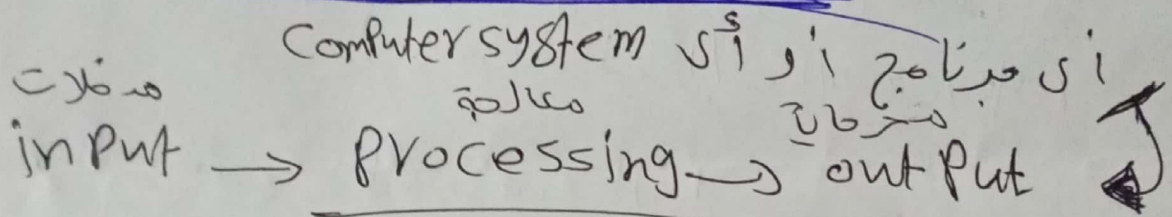 أى برنامج أو أى Computer system
مدخلات معالجة مخرجات
input → processing → output